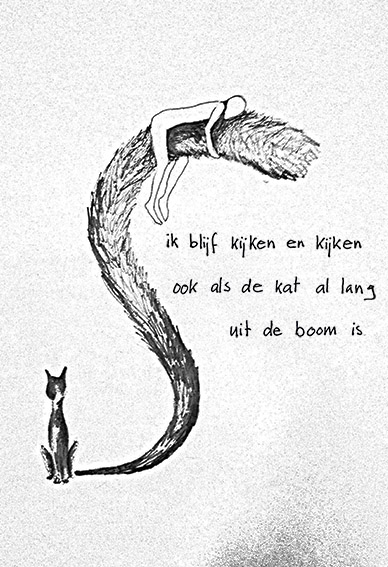 ik blijf kijken en kijken
ook als de kat al lang
uit de boom is